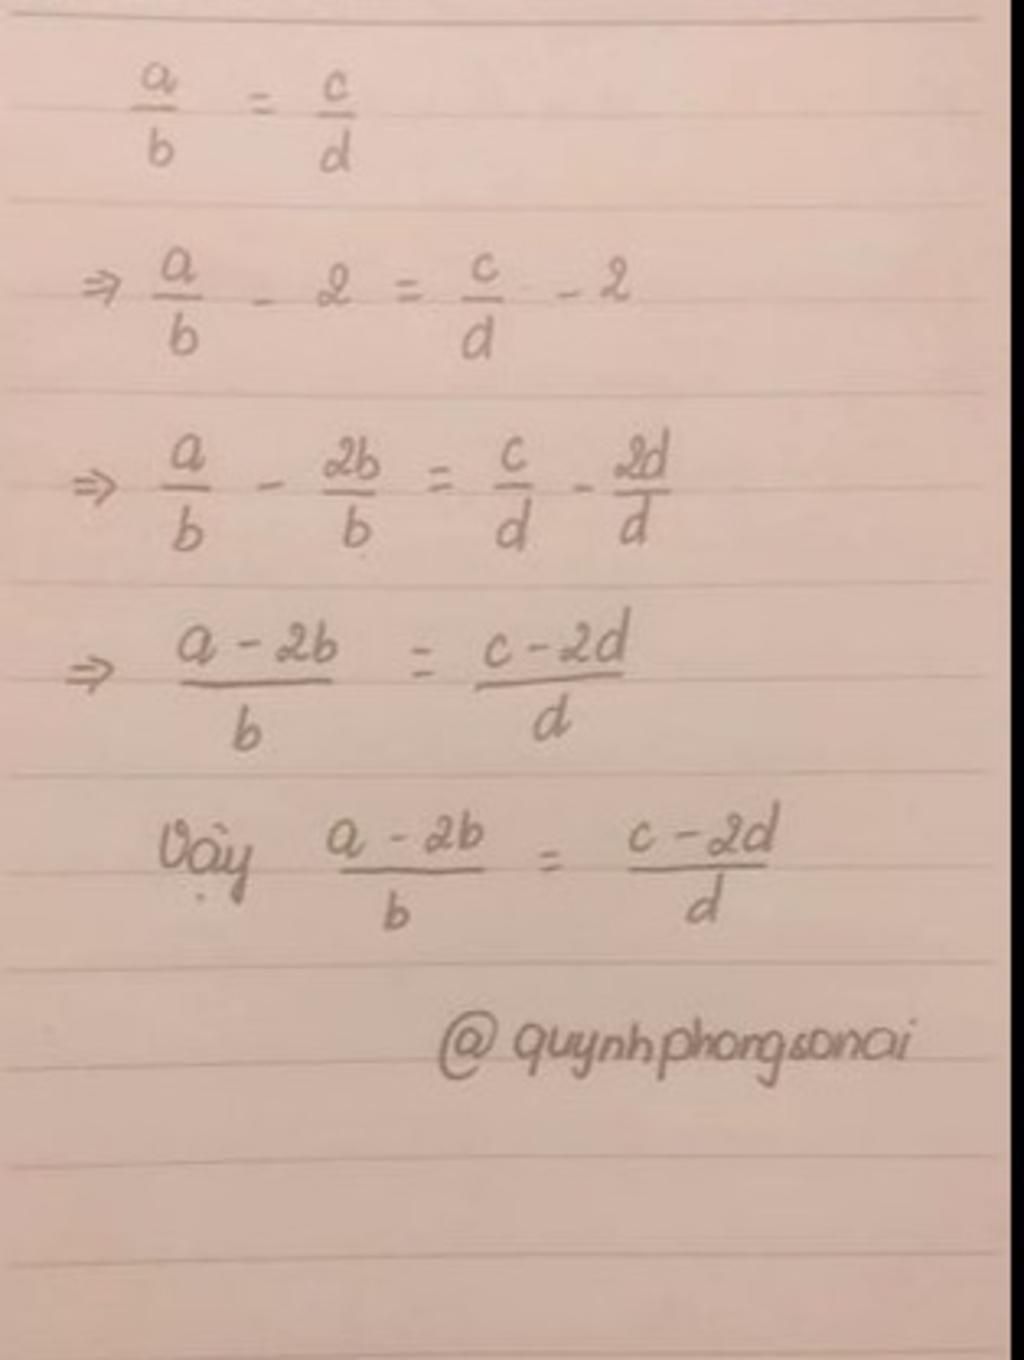 a/b = c/d
⇒ a/b - 2 = c/d - 2
⇒ a/b - 2b/b = c/d - 2d/d
⇒ (a - 2b)/b = (c - 2d)/d
Vậy (a - 2b)/b = (c - 2d)/d
@quynhphongsonai